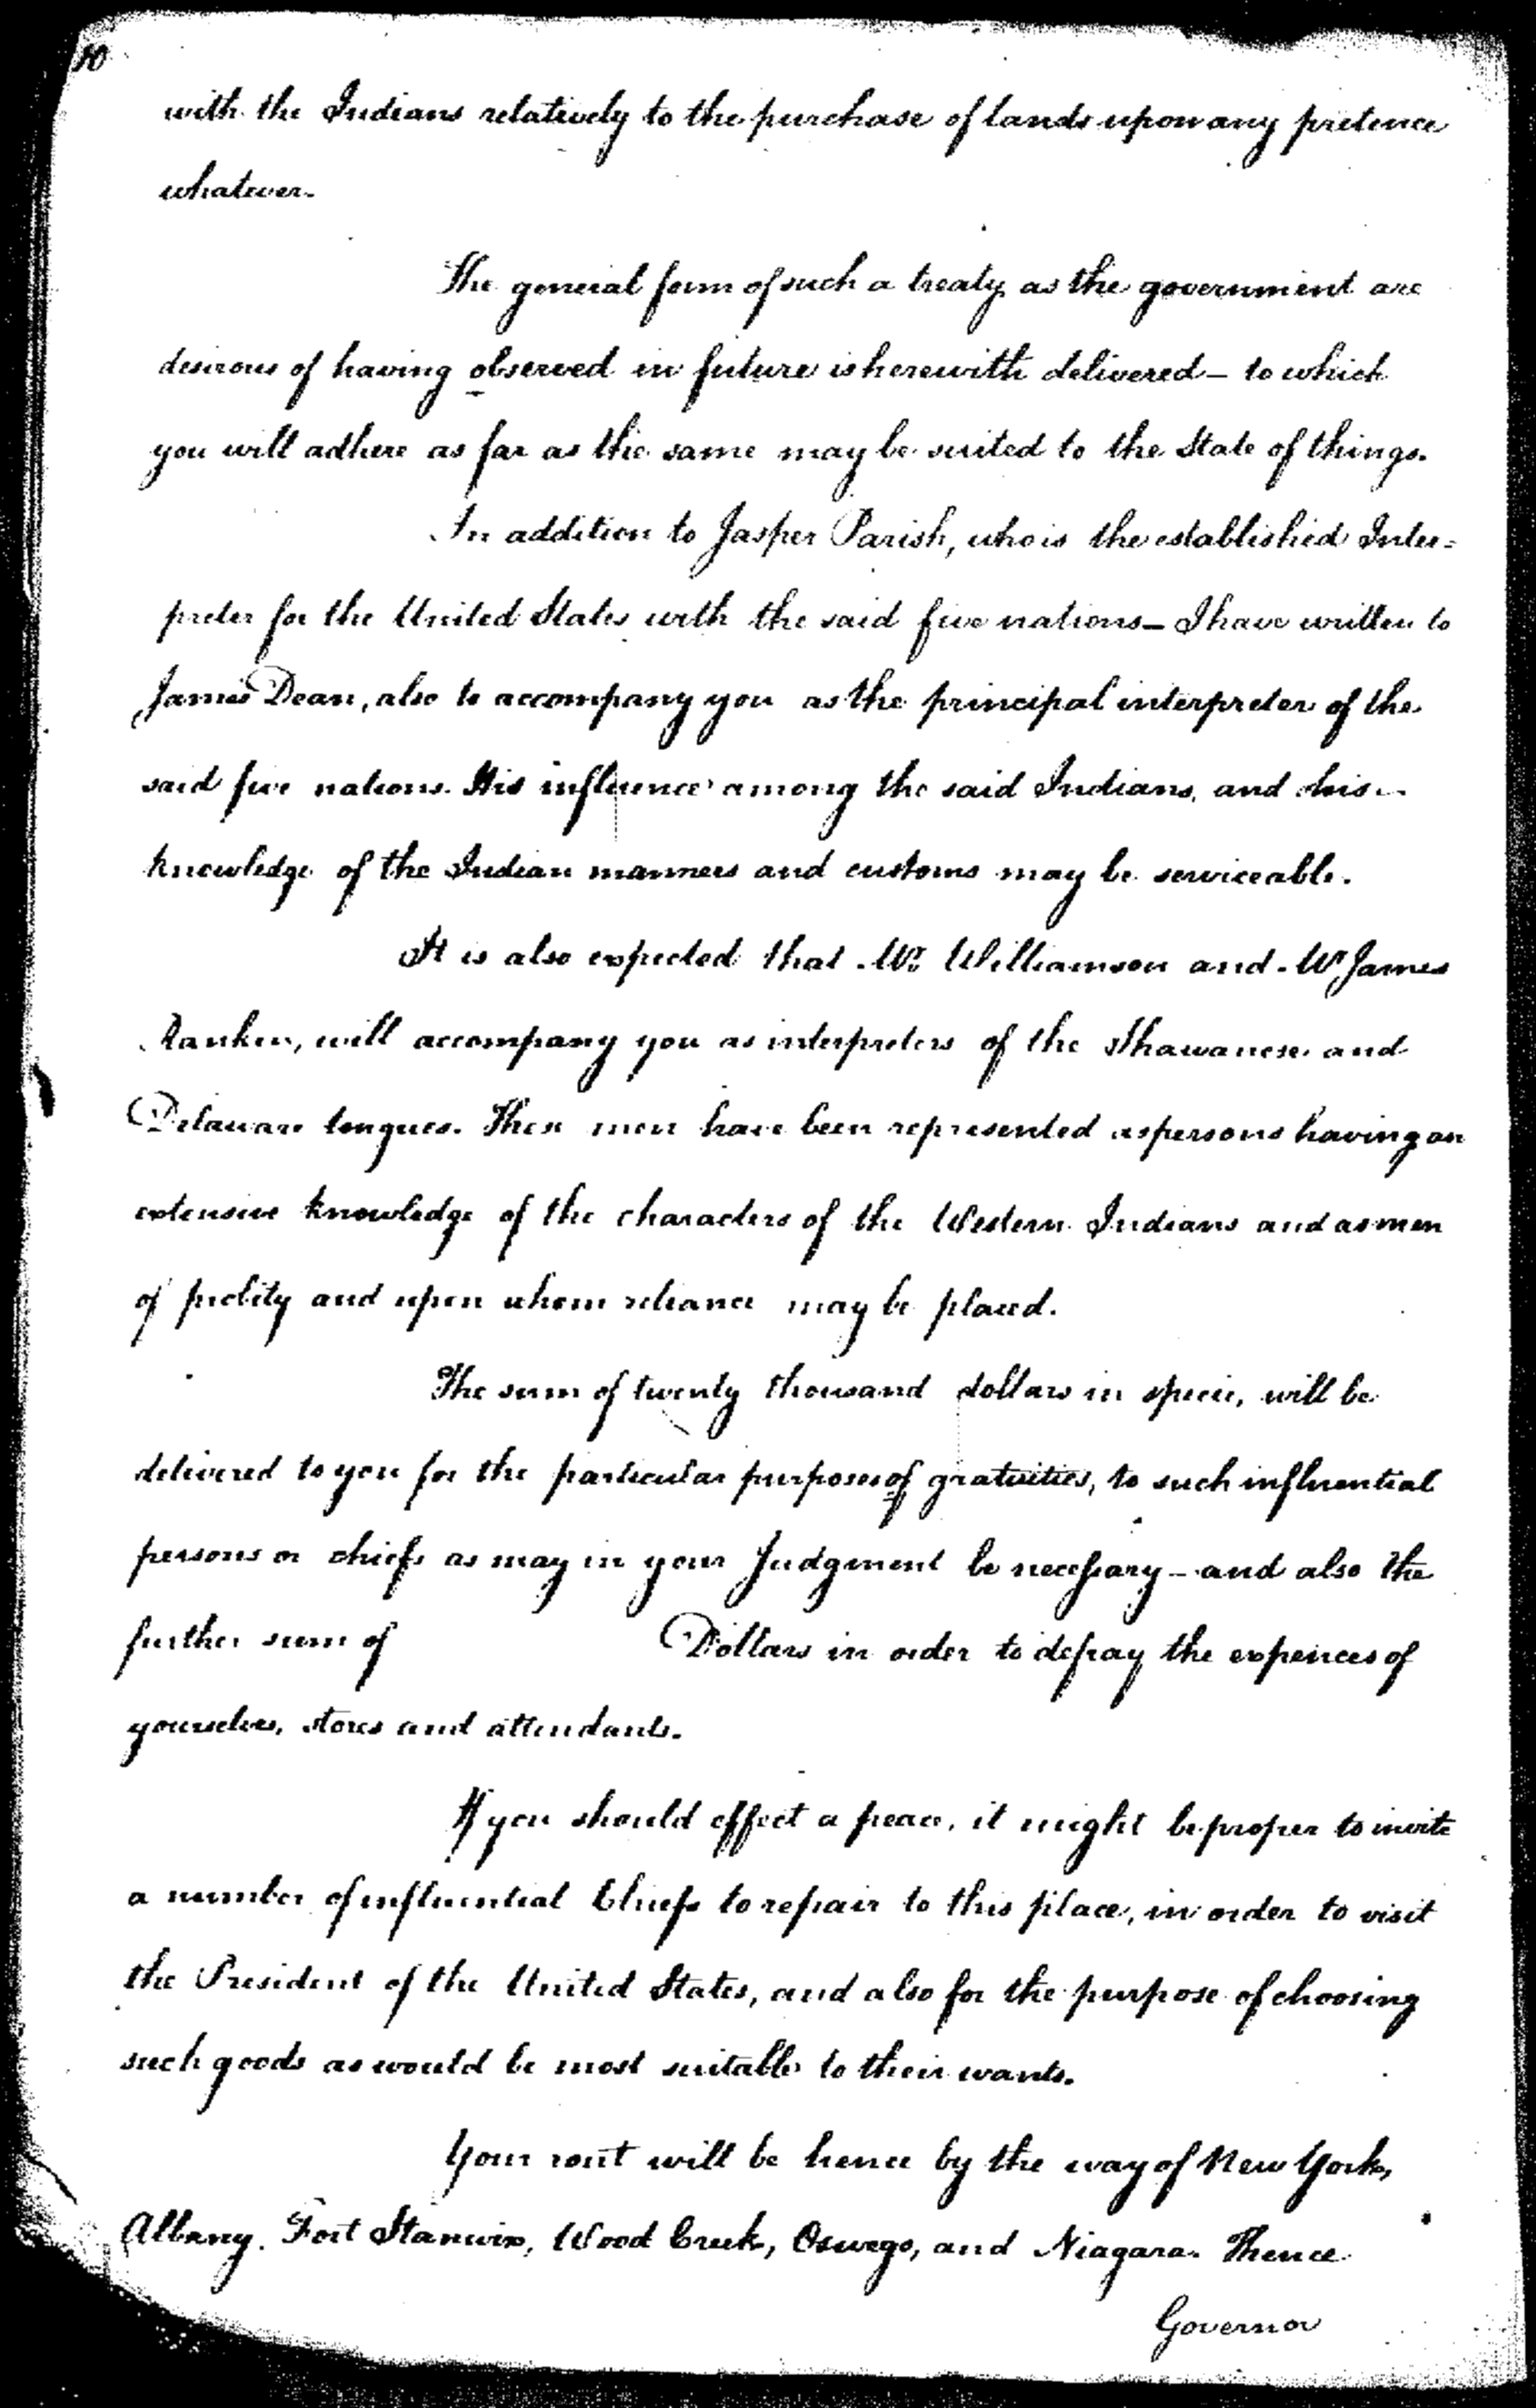 10
with the Indians relatively to the purchase of lands upon any pretence
whatever.
The general form of such a treaty as the government are
desirous of having observed in future is herewith delivered — to which
you will adhere as far as the same may be suited to the State of things.
In addition to Jasper Parish, who is the established Inter=
preter for the United States with the said five nations — I have written to
James Dean, also to accompany you as the principal interpreter of the
said five nations. His influence among the said Indians, and his
knowledge of the Indian manners and customs may be serviceable.
It is also expected that Mr. Williamson and Mr James
Rankin, will accompany you as interpreters of the Shawanese and
Delaware tongues. These men have been represented as persons having an
extensive knowledge of the characters of the Western Indians and as men
of probity and upon whom reliance may be placed.
The sum of twenty thousand dollars in specie, will be
delivered to you for the particular purposes of gratuities, to such influential
persons or chiefs as may in your Judgment be necessary — and also the
further sum of Dollars in order to defray the expences of
yourselves, stores and attendants.
If you should effect a peace, it might be proper to invite
a number of influential Chiefs to repair to this place, in order to visit
the President of the United States, and also for the purpose of choosing
such goods as would be most suitable to their wants.
Your rout will be hence by the way of New York,
Albany, Fort Stanwix, Wood Creek, Oswego, and Niagara. Thence
Governor